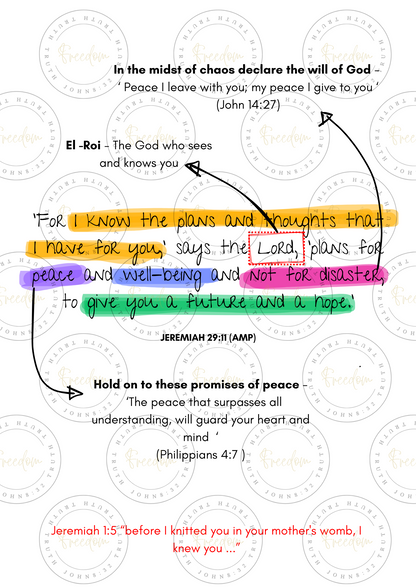 In the midst of chaos declare the will of God –
‘ Peace I leave with you; my peace I give to you ‘
(John 14:27)
El -Roi - The God who sees
and knows you
‘For I know the plans and thoughts that
I have for you,’ says the Lord, ‘plans for
peace and well-being and not for disaster,
to give you a future and a hope.’
JEREMIAH 29:11 (AMP)
Hold on to these promises of peace –
‘The peace that surpasses all
understanding, will guard your heart and
mind ‘
(Philippians 4:7 )
Jeremiah 1:5 “before I knitted you in your mother's womb, I
knew you ...”
Freedom